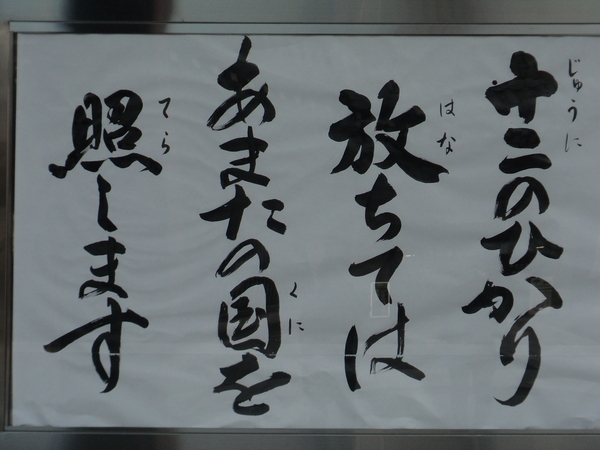 十二のひかり
じゅうに
放ちては
はな
あまたの国を
くに
照します
てら